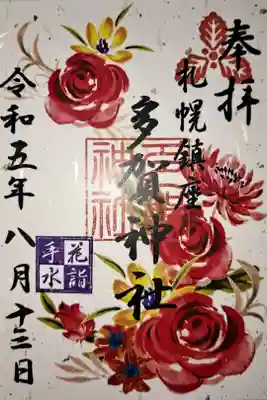 奉拝
札幌鎮座
多賀神社
花詣
手水
令和五年八月十三日